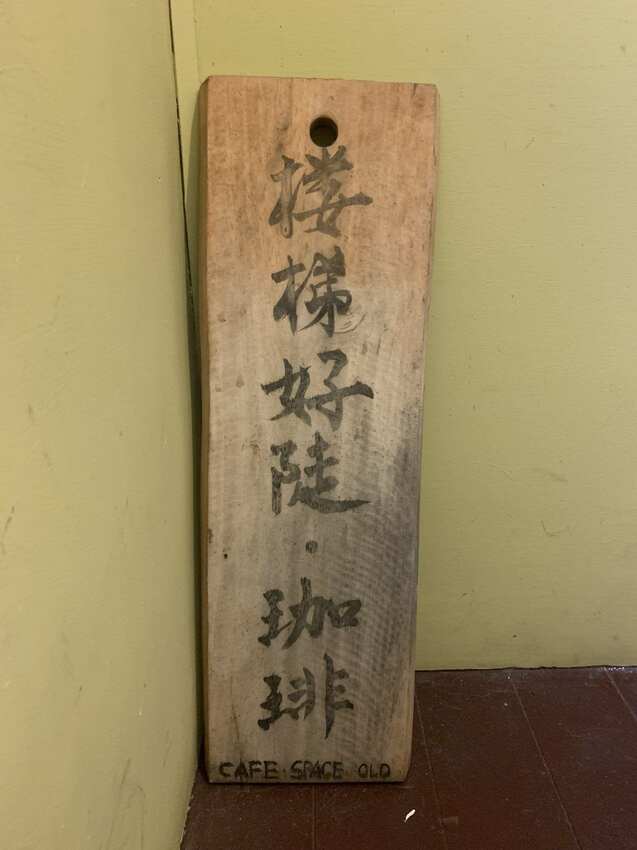 楼梯好陡·珈琲
CAFE·SPACE·OLD